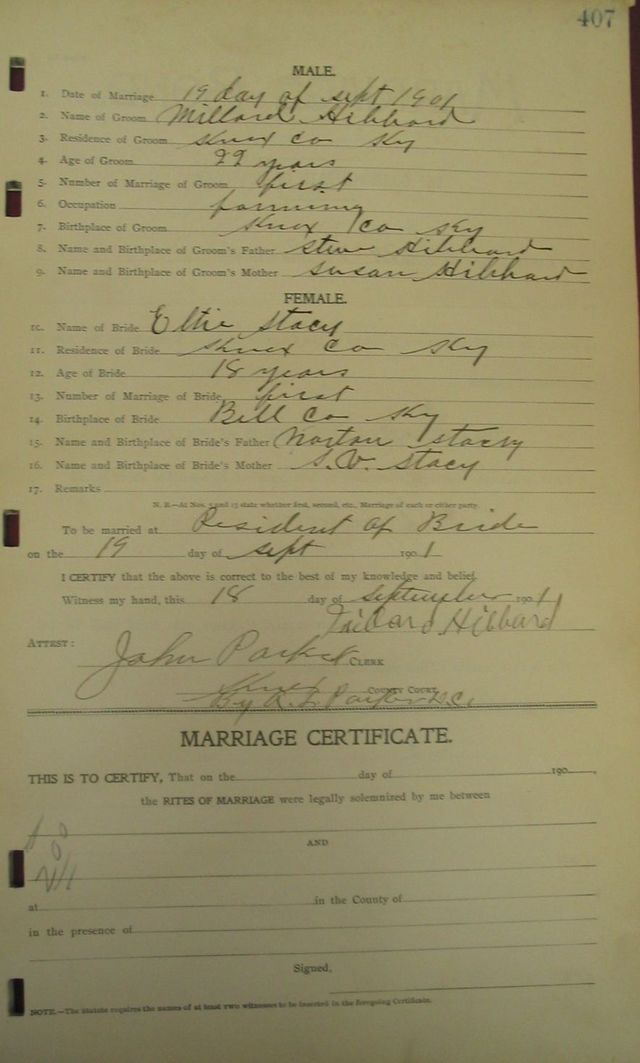 407
MALE.
1. Date of Marriage 19 day of sept 1901
2. Name of Groom Millard Hibbard
3. Residence of Groom Knox Co Ky
4. Age of Groom 22 years
5. Number of Marriage of Groom first
6. Occupation farming
7. Birthplace of Groom Knox Co Ky
8. Name and Birthplace of Groom's Father Steve Hibbard
9. Name and Birthplace of Groom's Mother Susan Hibbard
FEMALE.
10. Name of Bride Stacy
11. Residence of Bride Knox Co Ky
12. Age of Bride 18 years
13. Number of Marriage of Bride first
14. Birthplace of Bride Bell Co Ky
15. Name and Birthplace of Bride's Father Norton Stacy
16. Name and Birthplace of Bride's Mother S.V. Stacy
17. Remarks
N. B.—At Nos. 5 and 13 state whether first, second, etc., Marriage of each or either party.
To be married at Resident of Bride
on the 19 day of sept 1901
I CERTIFY that the above is correct to the best of my knowledge and belief.
Witness my hand, this 18 day of September 1901
Hibbard
ATTEST:
John Parker CLERK
Knox COUNTY COURT
By Parker D.C.
MARRIAGE CERTIFICATE.
THIS IS TO CERTIFY, That on the day of 190
the RITES OF MARRIAGE were legally solemnized by me between
AND
at in the County of
in the presence of
Signed,
NOTE.—The Statute requires the names of at least two witnesses to be inserted in the foregoing Certificate.